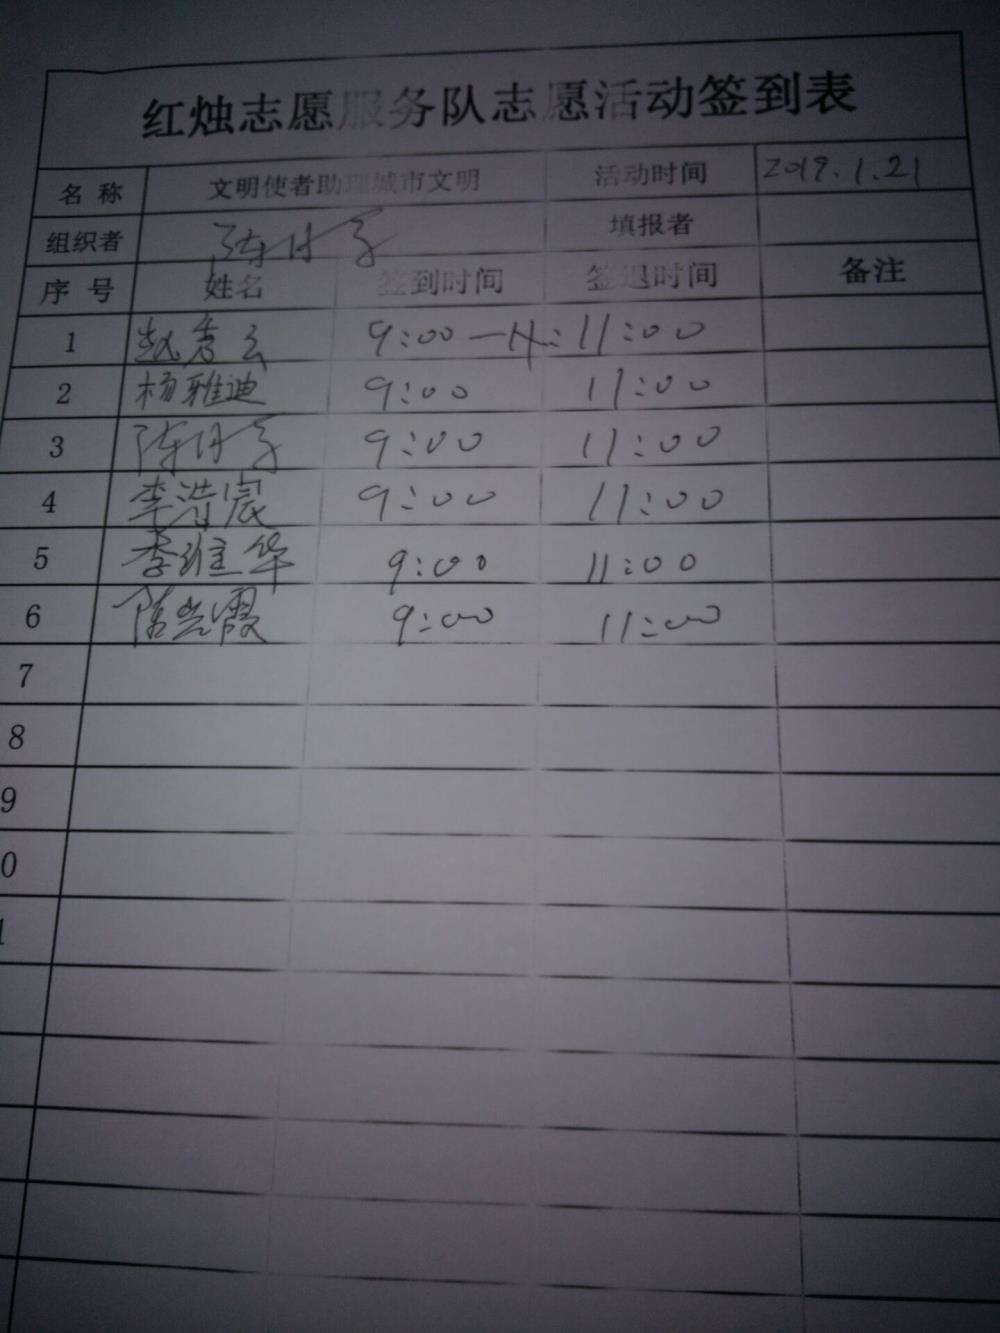 红烛志愿服务队志愿活动签到表
名 称 文明使者助理城市文明 活动时间 2019.1.21
组织者 填报者
序 号 姓名 签到时间 签退时间 备注
1 赵秀云 9:00 11:00
2 杨雅迪 9:00 11:00
3 9:00 11:00
4 李浩宸 9:00 11:00
5 李维华 9:00 11:00
6 陈光霞 9:00 11:00
7
8
9
0
1